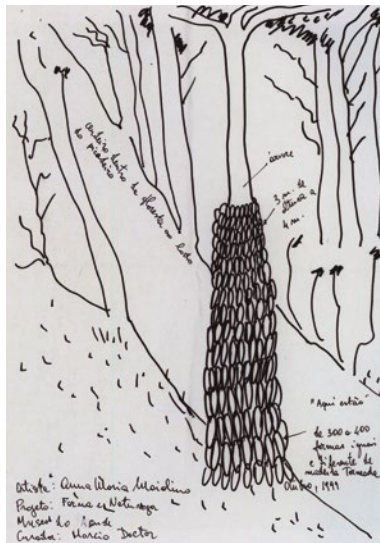 canteiro dentro da floresta ao lado
do picadeiro
árvore
3 m. de
altura a
4 m.
"Aqui estão"
de 300 a 400
formas iguais
e diferente de
madeira Torneada
Outubro, 1999
Artista: Anna Maria Maiolino
Projeto: Forma e Natureza
Museu do Açude
Curador: Marcio Doctor